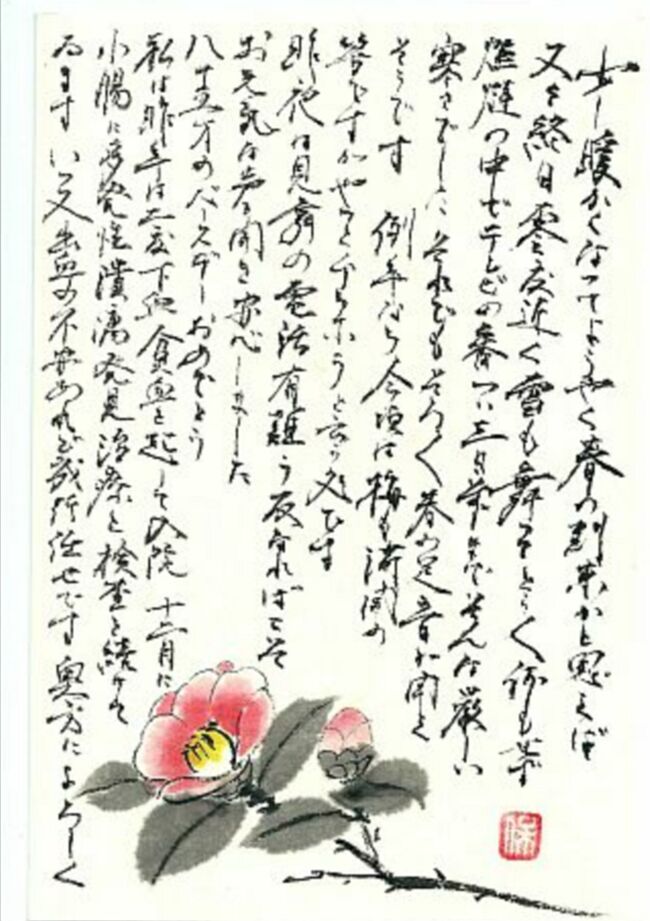 少し暖かくなってようやく春の到来かと思えば
又々終日零度近く雪も舞う
の中でテレビの番 つい三日前までそんな厳しい
寒さでした それでもそろそろ春の足音が聞え
そうです 例年なら今頃は梅も満開の
筈ですがやっとちらほらと云う処です
昨夜は見舞の電話有難う 友なればこそ
お元気な声を聞き安心しました
八十五才のバースデーおめでとう
私は昨年は二度下血貧血を起して入院 十二月に
小腸に多発性潰瘍発見治療と検査を続けて
ゐます いつ又出血の不安あれど成行任せです 奥方によろしく